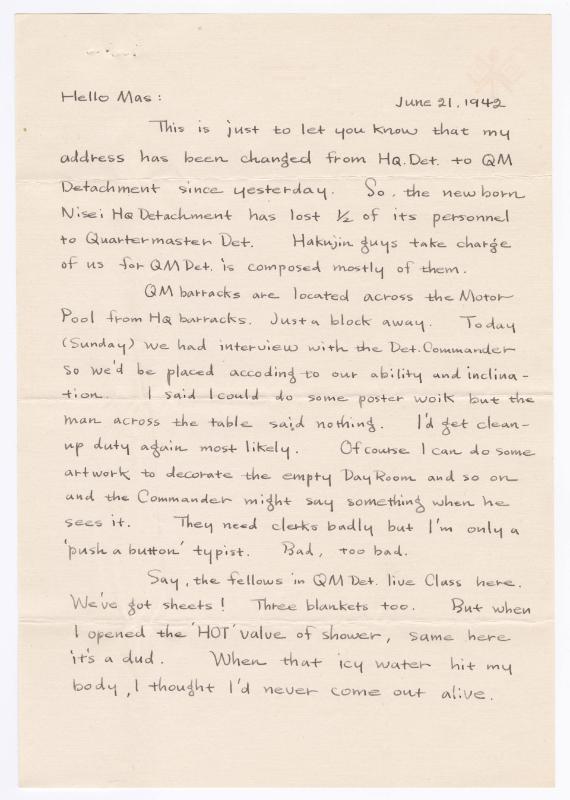 Hello Mas:
June 21, 1942
This is just to let you know that my
address has been changed from Hq. Det. to QM
Detachment since yesterday. So, the new born
Nisei Hq Detachment has lost ½ of its personnel
to Quartermaster Det. Hakujin guys take charge
of us for QM Det. is composed mostly of them.
QM barracks are located across the Motor
Pool from Hq barracks. Just a block away. Today
(Sunday) we had interview with the Det. Commander
so we'd be placed accoding to our ability and inclina-
tion. I said I could do some poster woik but the
man across the table said nothing. I'd get clean-
up duty again most likely. Of course I can do some
artwork to decorate the empty Day Room and so on
and the Commander might say something when he
sees it. They need clerks badly but I'm only a
'push a button' typist. Bad, too bad.
Say, the fellows in QM Det. live Class here.
We've got sheets! Three blankets too. But when
I opened the 'HOT' value of shower, same here
it's a dud. When that icy water hit my
body, I thought I'd never come out alive.